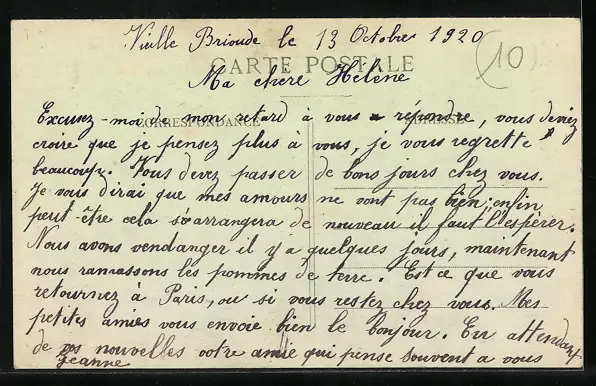 Vieille Brioude le 13 Octobre 1920
10
CARTE POSTALE
Ma chère Hélène
CORRESPONDANCE
ADRESSE
Excusez-moi de mon retard à vous répondre, vous deviez
croire que je pensez plus à vous, je vous regrette
beaucoup. Vous devez passer de bons jours chez vous.
Je vous dirai que mes amours ne vont pas bien, enfin
peut-être cela s'arrangera de nouveau il faut l'espèrer.
Nous avons vendanger il y a quelques jours, maintenant
nous ramassons les pommes de terre. Est ce que vous
retournez à Paris, ou si vous restez chez vous. Mes
petites amies vous envoie bien le bonjour. En attendant
de vos nouvelles votre amie qui pense souvent a vous
Jeanne